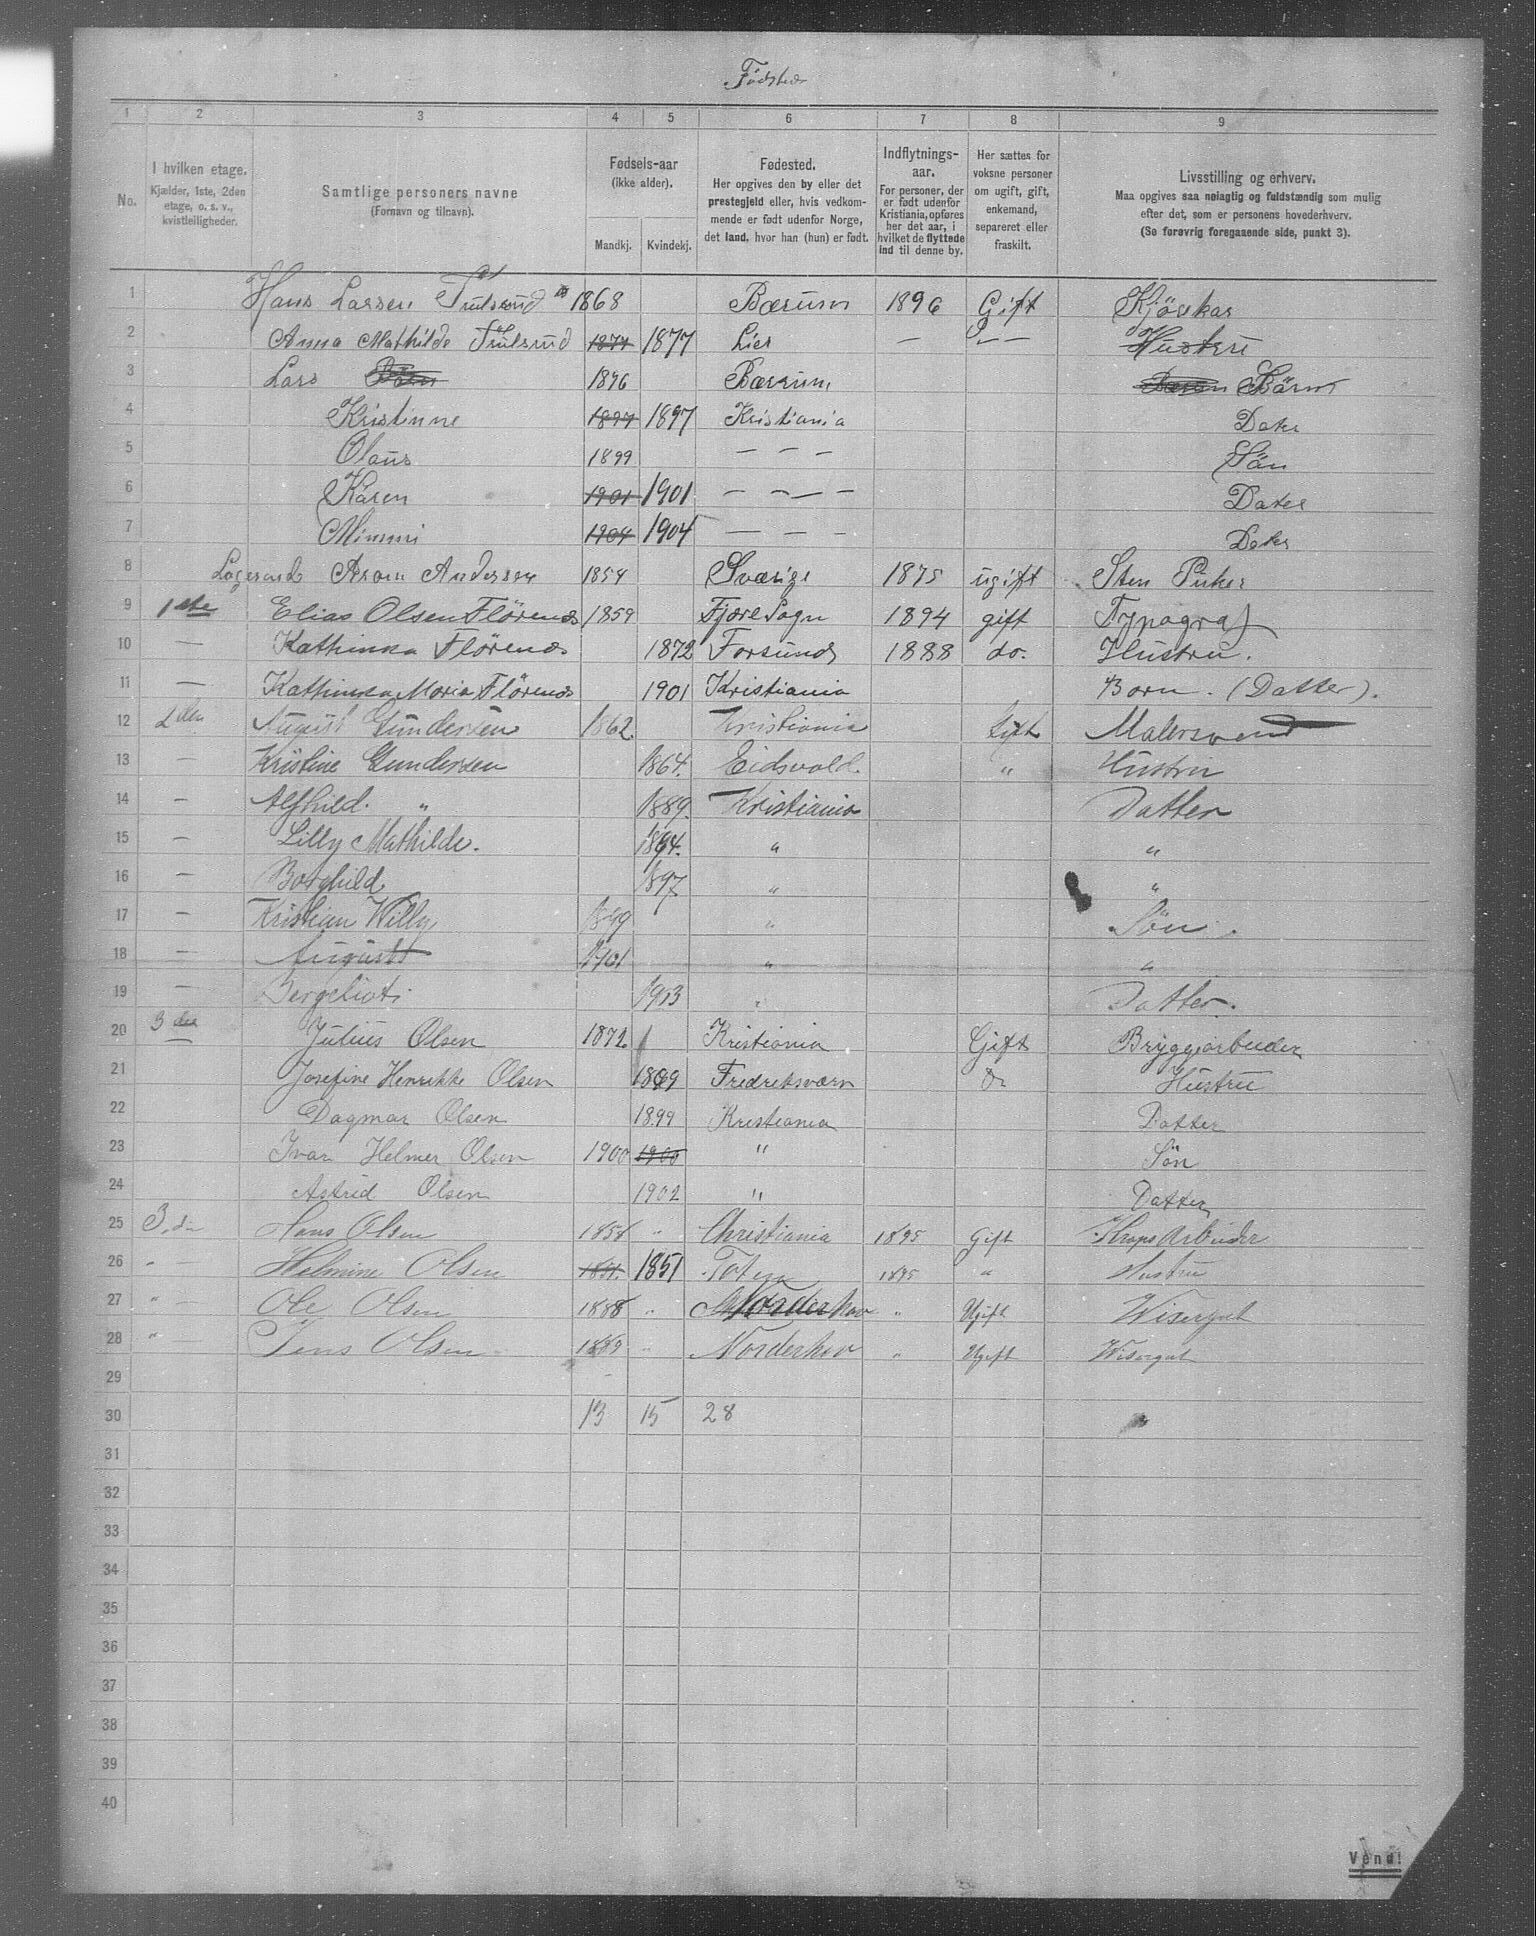 Fødsted
1 2 3 4 5 6 7 8 9
No. I hvilken etage. Kjælder, 1ste, 2den etage, o. s. v., kvistleiligheder. Samtlige personers navne (Fornavn og tilnavn). Fødsels-aar (ikke alder). Mandkj. Kvindekj. Fødested. Her opgives den by eller det prestegjeld eller, hvis vedkommende er født udenfor Norge, det land, hvor han (hun) er født. Indflytnings-aar. For personer, der er født udenfor Kristiania, opføres her det aar, i hvilket de flyttede ind til denne by. Her sættes for voksne personer om ugift, gift, enkemand, separeret eller fraskilt. Livsstilling og erhverv. Maa opgives saa nøiagtig og fuldstændig som mulig efter det, som er personens hovederhverv. (Se forøvrig foregaaende side, punkt 3).
1 Hans Larsen Tulsrud 1868 Bærum 1896 Gift Kjöskar
2 Anna Mathilde Tulsrud 1877 1877 Lier — — — Hustru
3 Lars Börn 1896 Bærum Börn
4 Kristinne 1897 1897 Kristiania Dater
5 Olaus 1899 — — — Sön
6 Karen 1901 1901 — — — — Dater
7 Mimmi 1904 1904 — — — Dater
8 Logerende Aron Andersen 1854 Sværige 1875 ugift Sten Piker
9 1ste Elias Olsen Flörenæs 1859 Fjære Sogn 1894 gift Typograf
10 — Kathinka Flörenæs 1872 Farsund 1888 do. Hustru.
11 — Kathinka Maria Flörenæs 1901 Kristiania Barn. (Datter).
12 2den August Gundersen 1862. Kristiania Gift Malersvend
13 — Kristine Gundersen 1864. Eidsvold. " Hustru
14 — Alfhild. " 1889. Kristiania Datter
15 — Lilly Mathilde. 1894. " "
16 — Borghild 1897 " "
17 — Kristian Willy 1899 " Sön.
18 — August 1901 " "
19 — Bergeliot 1903 " Datter.
20 3die Julius Olsen 1872 Kristiania Gift Bryggiarbeider
21 Josefine Henrikke Olsen 1869 Fredriksværn Do Hustru
22 Dagmar Olsen 1899 Kristiania Datter
23 Ivar Helmer Olsen 1900 1900 " Sön
24 Astrid Olsen 1902 " Datter
25 3.die Hans Olsen 1858 " Christiania 1895 Gift Arbeider
26 " — Helmine Olsen 1851. 1851 Toten 1895 " Hustru
27 " — Ole Olsen 1888 " Norderhov " Ugift Wisergut
28 " — Jens Olsen 1889 " Norderhov " Ugift Wisergut
29
30 13 15 28
31
32
33
34
35
36
37
38
39
40
Vend!